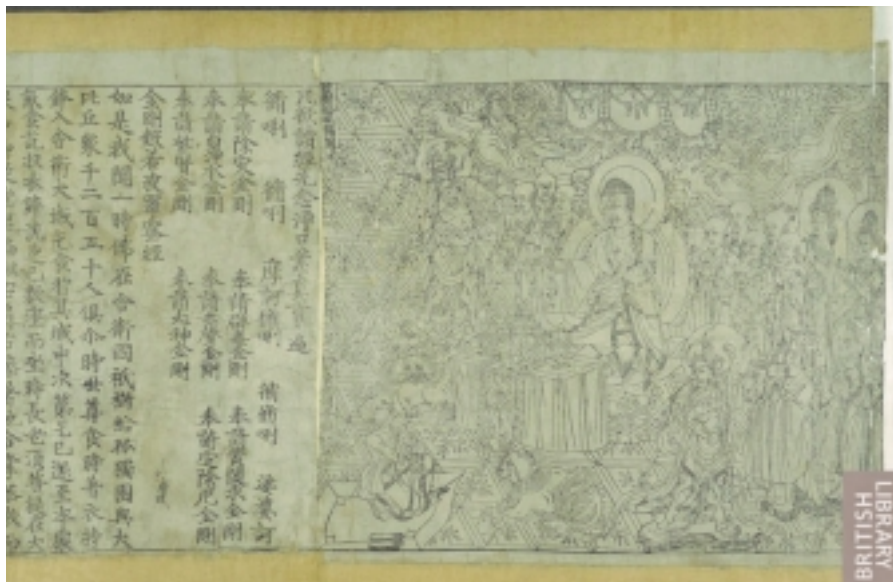 凡欲讀經先念淨口業真言遍
脩唎 脩唎 摩訶脩唎 脩脩唎 娑婆訶
奉請除災金剛 奉請辟毒金剛 奉請黃隨求金剛
奉請白淨水金剛 奉請赤聲金剛 奉請定除厄金剛
奉請紫賢金剛 奉請大神金剛
金剛般若波羅蜜經
如是我聞一時佛在舍衛國祇樹給孤獨園與大
比丘衆千二百五十人俱尒時世尊食時著衣持
鉢入舍衛大城乞食於其城中次第乞已還至本處
飯食訖收衣鉢洗足已敷座而坐時長老須菩提在大
BRITISH
LIBRARY